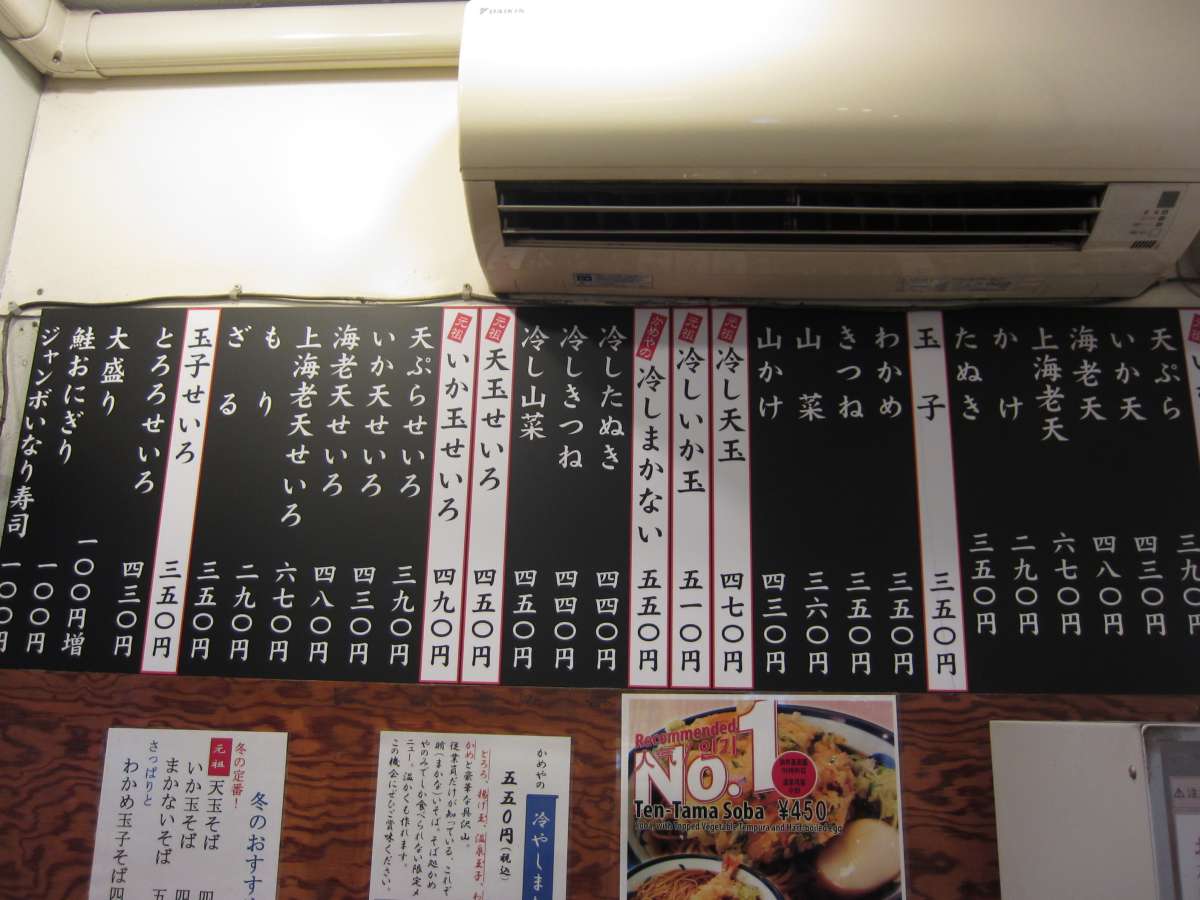 DAIKIN
天ぷら 三九〇円
いか天 四三〇円
海老天 四八〇円
上海老天 六七〇円
かけ 二九〇円
たぬき 三五〇円
玉子 三五〇円
わかめ 三五〇円
きつね 三五〇円
山菜 三六〇円
山かけ 四三〇円
元祖 冷し天玉 四七〇円
元祖 冷しいか玉 五一〇円
かめやの 冷しまかない 五五〇円
冷したぬき 四四〇円
冷しきつね 四四〇円
冷し山菜 四五〇円
元祖 天玉せいろ 四五〇円
元祖 いか玉せいろ 四九〇円
天ぷらせいろ 三九〇円
いか天せいろ 四三〇円
海老天せいろ 四八〇円
上海老天せいろ 六七〇円
もり 二九〇円
ざる 三五〇円
玉子せいろ 三五〇円
とろろせいろ 四三〇円
大盛り 一〇〇円増
鮭おにぎり 一〇〇円
ジャンボいなり寿司 一〇〇円
Recommended
人気 인기
No.1
Ten-Tama Soba ¥450
かめやの
冷やしま
五五〇円(税込)
とろろ、揚げ玉、温泉玉子、わ
かめと豪華な具沢山。
従業員だけが知っている、これぞ
賄(まかない)そば。そば処かめ
やのみでしか食べられない限定メ
ニュー。温かくも作れます。
この機会にぜひご賞味ください。
冬のおすす
冬の定番!
元祖 天玉そば 四
いか玉そば 四
まかないそば 五
さっぱりと
わかめ玉子そば 四